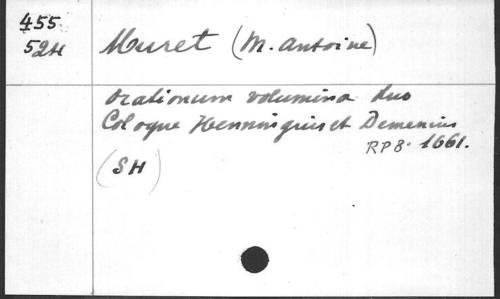 455
524
Muret (M. Antoine)
Orationum volumina duo
Cologne Henningius et Demenius
RP8° 1661.
(SH)